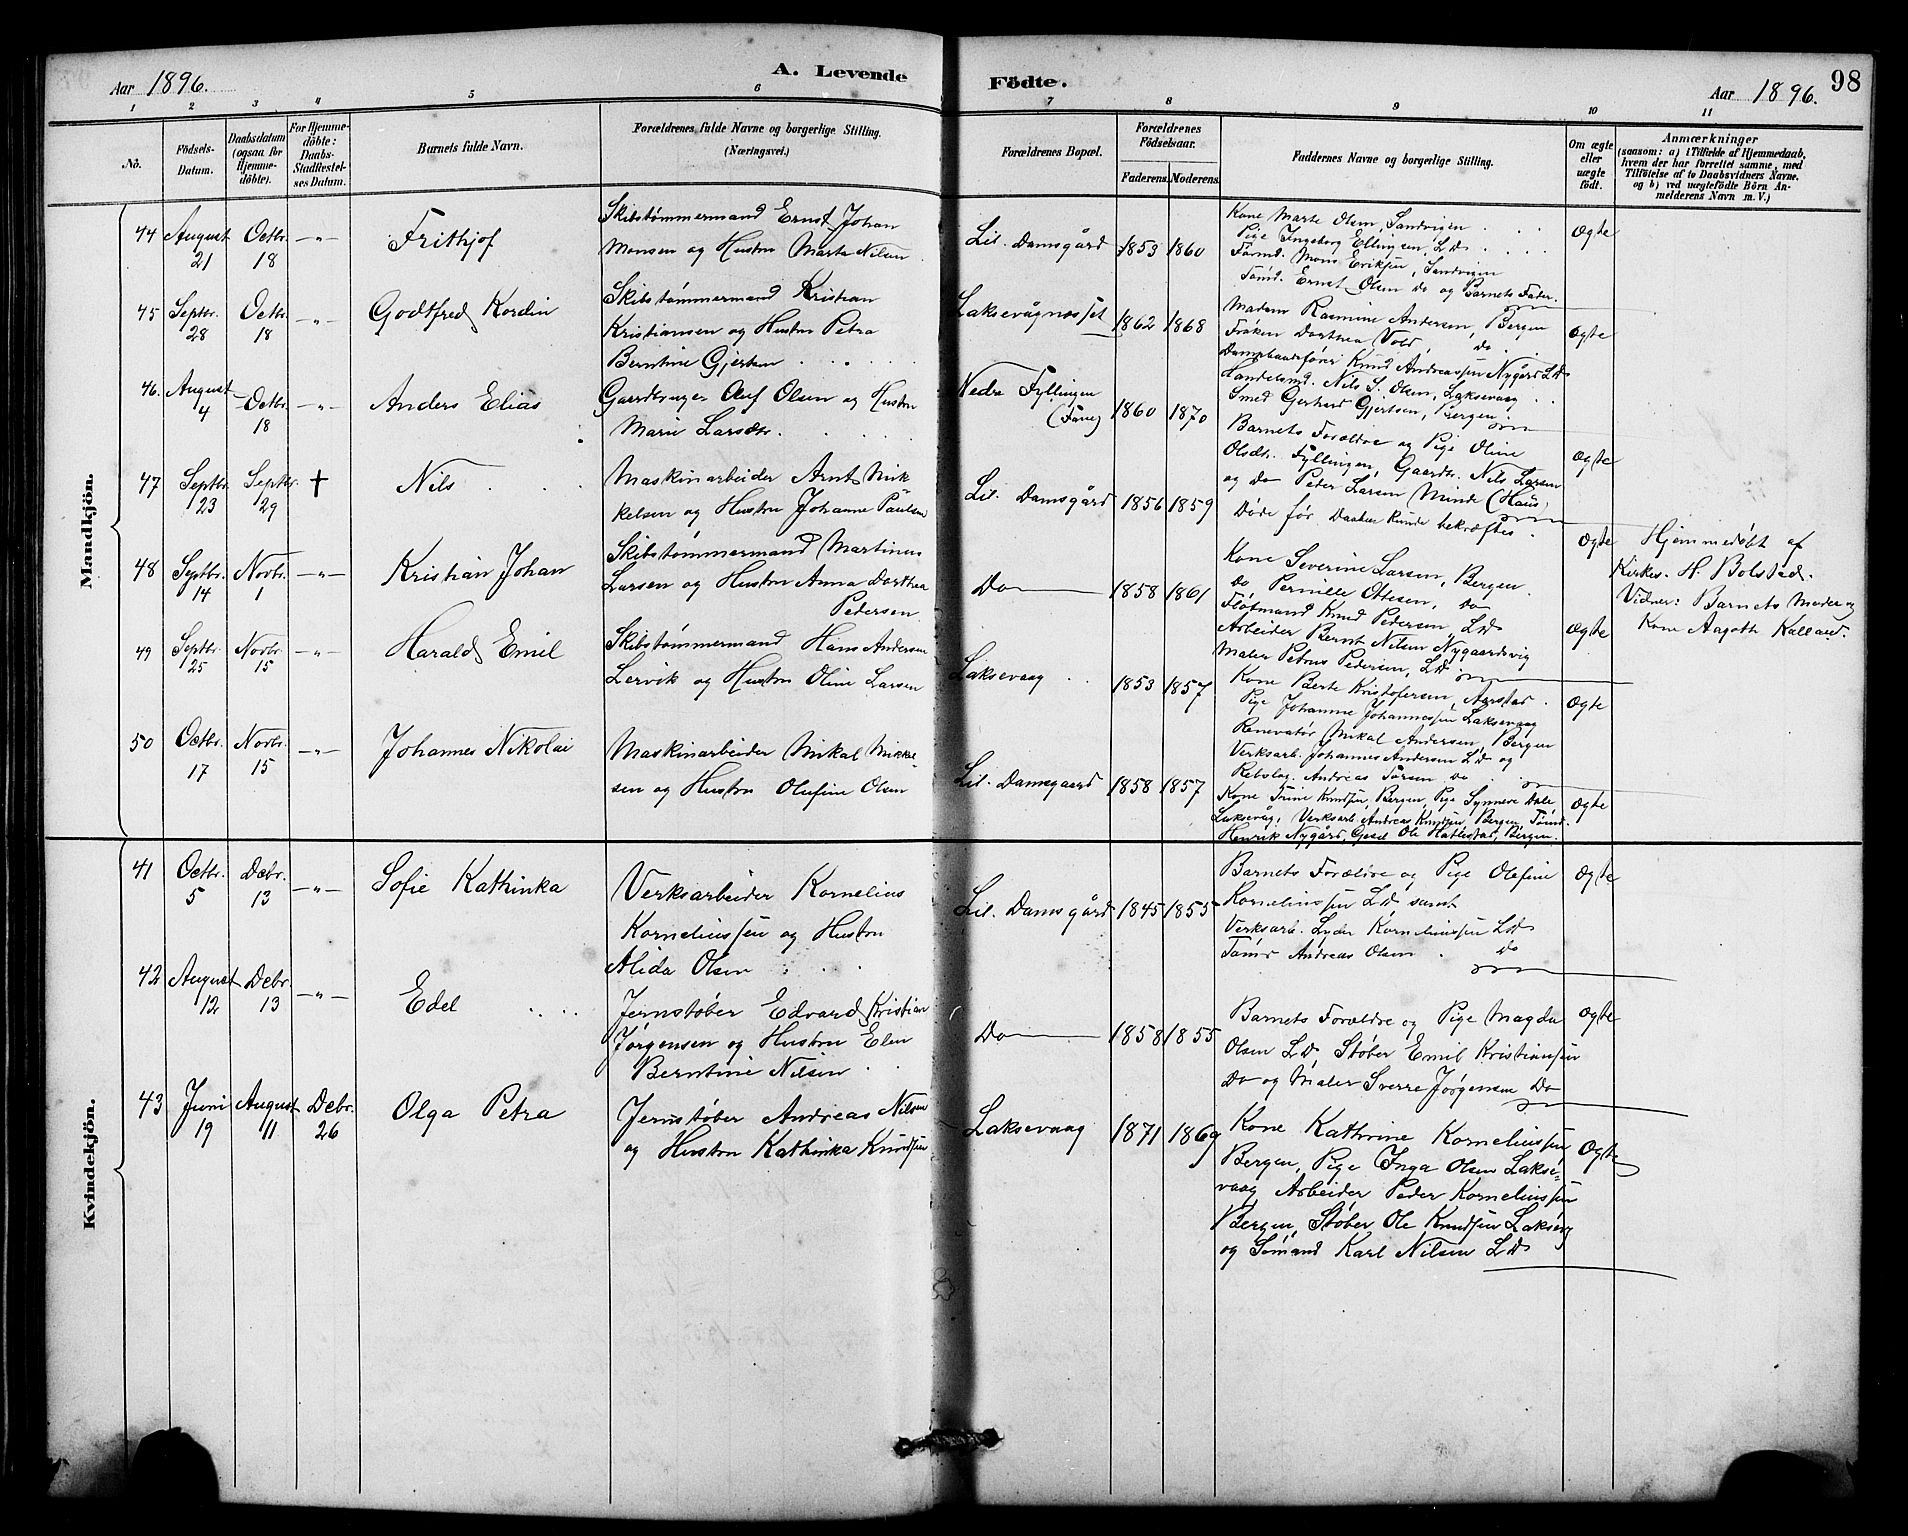 Aar 1896.
A. Levende
Födte.
Aar 1896.
98
1 2 3 4 5 6 7 8 9 10 11
No.
Födsels-Datum.
Daabsdatum (ogsaa for Hjemmedöbte).
For Hjemmedöbte: Daabs-Stadfæstelses Datum.
Barnets fulde Navn.
Forældrenes fulde Navne og borgerlige Stilling.
(Næringsvei.)
Forældrenes Bopæl.
Forældrenes Födselsaar.
Faderens. Moderens.
Faddernes Navne og borgerlige Stilling.
Om ægte eller uægte födt.
Anmærkninger
(saasom: a) i Tilfælde af Hjemmedaab, hvem der har forrettet samme, med Tilföielse af to Daabsvidners Navne, og b) ved uægtefödte Börn Anmelderens Navn m. V.)
Mandkjön.
44 August 21 Octbr. 18 -"- Frithjof
Skibstømmermand Ernst Johan
Monsen og Hustru Marta Nilsen
Lil. Damsgård 1853 1860
Kone Marte Olsen, Sandvigen
Pige Ingeborg Ellingsen, Ld
Tømd. Mons Eriksen, Sandvigen
Tømd. Ernst Olsen do og Barnets Fader.
Ægte
45 Septbr. 28 Octbr. 18 -"- Godtfred Kordin
Skibstømmermand Kristian
Kristiansen og Hustru Petra
Berntine Gjertsen
Laksevågnesset 1862 1868
Madam Rasmine Andersen, Bergen
Frøken Dorthea Vold, do
Dampbaadsfører Knud Andreassen Nygård Ld
Handelsmd. Nils S. Olsen, Laksevaag
Smed Gerhard Gjertsen, Bergen
Ægte
46. August 4 Octbr. 18 -"- Anders Elias
Gaardbruger Oluf Olsen og Hustru
Marie Larsdtr.
Nedre Fyllingen
(Fane) 1860 1870
Barnets Forældre og Pige Oline
Olsdtr. Fyllingen, Gaardbr. Nils Larsen
og do Peder Larsen Minde (Haus)
Ægte
47 Septbr. 23 Septbr. 29 † Nils
Maskinarbeider Arnt Mik
kelsen og Hustru Johanne Paulsen
Lil. Damsgård 1856 1859
Døde før Daaben kunde bekræftes.
Ægte
Hjemmedøbt af
Kirkes. H. Bolstad.
Vidner: Barnets Moder og
Kone Aagoth Kalland.
48 Septbr. 14 Novbr. 1 -"- Kristian Johan
Skibstømmermand Martinus
Larsen og Hustru Anna Dorthea
Pedersen
Do 1858 1861
Kone Severine Larsen, Bergen
Do Pernille Ottesen, do
Fløtmand Knud Pedersen, Ld
Arbeider Bernt Nilsen Nygaardsvig
Maler Petrus Pedersen, Ld
Ægte
49 Septbr. 25 Novbr. 15 -"- Harald Emil
Skibstømmermand Hans Andersen
Lervik og Hustru Oline Larsen
Laksevaag 1853 1857
Kone Berte Kristofersen, Aarstad
Pige Johanne Johannessen Laksevaag
Renovatør Mikal Andersen, Bergen
Verksarb. Johannes Andersen Ld og
Rebslag. Andreas Larsen Do
Ægte
50 Octbr. 17 Novbr. 15 -"- Johannes Nikolai
Maskinarbeider Mikal Mikkel
sen og Hustru Olufine Olsen
Lil. Damsgaard 1858 1857
Kone Trine Knudsen, Bergen, Pige Synneve Dale
Laksevåg, Verksarb. Andreas Knudsen, Bergen, Tømd.
Henrik Nygård, Ole Hatlestad, Bergen.
Ægte
Kvindekjön.
41 Octbr. 5 Decbr. 13 -"- Sofie Kathinka
Verksarbeider Kornelius
Korneliussen og Hustru
Alida Olsen
Lil. Damsgård 1845 1855
Barnets Forældre og Pige Olefine
Korneliussen Ld samt
Verksarb. Lyder Korneliussen Ld
Tømr Andreas Olsen do
Ægte
42 August 12 Debr. 13 -"- Edel
Jernstøber Edvard Kristian
Jørgensen og Hustru Elen
Berntine Nilsen
Do 1858 1855
Barnets Forældre og Pige Magda
Olsen Ld, Støber Emil Kristiansen
Do og Maler Sverre Jørgensen Do
Ægte
43 Juni 19 August 11 Debr. 26 Olga Petra
Jernstøber Andreas Nilsen
og Hustru Kathinka Knudsen
Laksevaag 1871 1869
Kone Kathrine Korneliussen
Bergen, Pige Inga Olsen Lakse-
vaag, Arbeider Peder Korneliussen
Bergen, Støber Ole Knudsen Laksevg
og Sømand Karl Nilsen Ld
Ægte